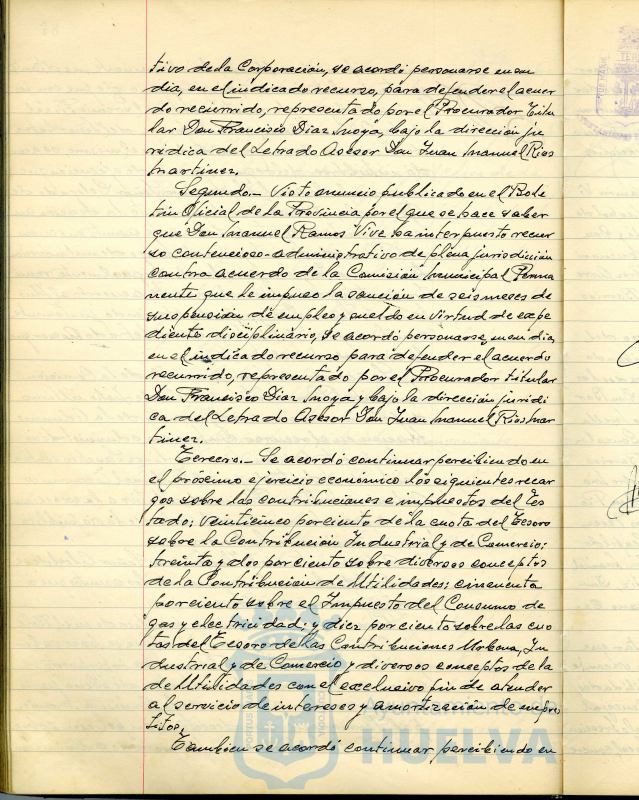 tivo de la Corporación, se acordó personarse en su
día, en el indicado recurso, para defender el acuer
do recurrido, representado por el Procurador Titu
lar Don Francisco Diaz Moya, bajo la dirección ju
ridica del Letrado Asesor Don Juan Manuel Rios
Martinez.
Segundo.- Visto anuncio publicado en el Bole
tin Oficial de la Provincia por el que se hace saber
que Don Manuel Ramos Vive ha interpuesto recur
so contencioso-administrativo de plena jurisdicción
contra acuerdo de la Comisión Municipal Perma
nente que le impuso la sanción de seis meses de
suspensión de empleo y sueldo en virtud de expe
diente disciplinario, se acordó personarse, en su dia,
en el indicado recurso para defender el acuerdo
recurrido, representado por el Procurador titular
Don Francisco Diaz Moya y bajo la dirección juridi
ca del Letrado Asesor Don Juan Manuel Rios Mar
tinez.
Tercero.- Se acordó continuar percibiendo en
el próximo ejercicio económico los siguientes recar
gos sobre las contribuciones e impuestos del Es
tado; veinticinco por ciento de la cuota del Tesoro
sobre la Contribución Industrial y de Comercio;
treinta y dos por ciento sobre diversos conceptos
de la Contribución de Utilidades; cincuenta
por ciento sobre el Impuesto del Consumo de
gas y electricidad; y diez por ciento sobre las cuo
tas del Tesoro de las Contribuciones Urbana, In
dustrial y de Comercio y diversos conceptos de la
de Utilidades con el exclusivo fin de atender
al servicio de intereses y amortización de emprés
titos.
También se acordó continuar percibiendo en
Ayuntamiento de
HUELVA